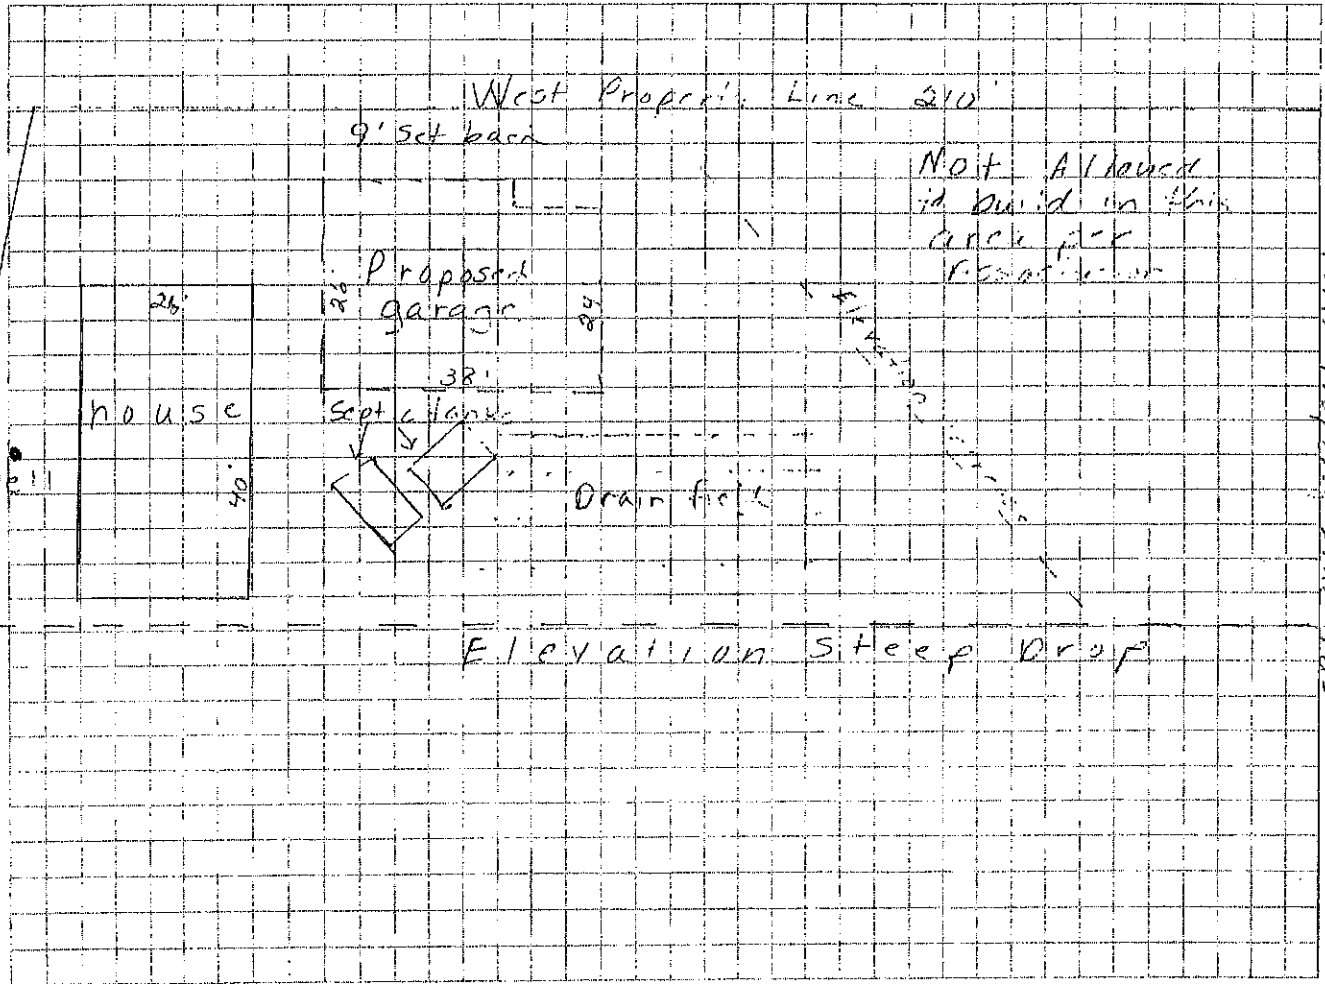 West Property Line 210'
9' Set back
Not Allowed
to build in this
area per
Proposed
garage
26'
24'
38'
house
40'
Septic tanks
Drain field
Elevation
Elevation Steep Drop